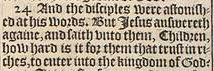 24 And the disciples were astonish-
ed at his words. But Jesus answereth
againe, and saith vnto them, Children,
how hard is it for them that trust in ri-
ches, to enter into the kingdom of God.